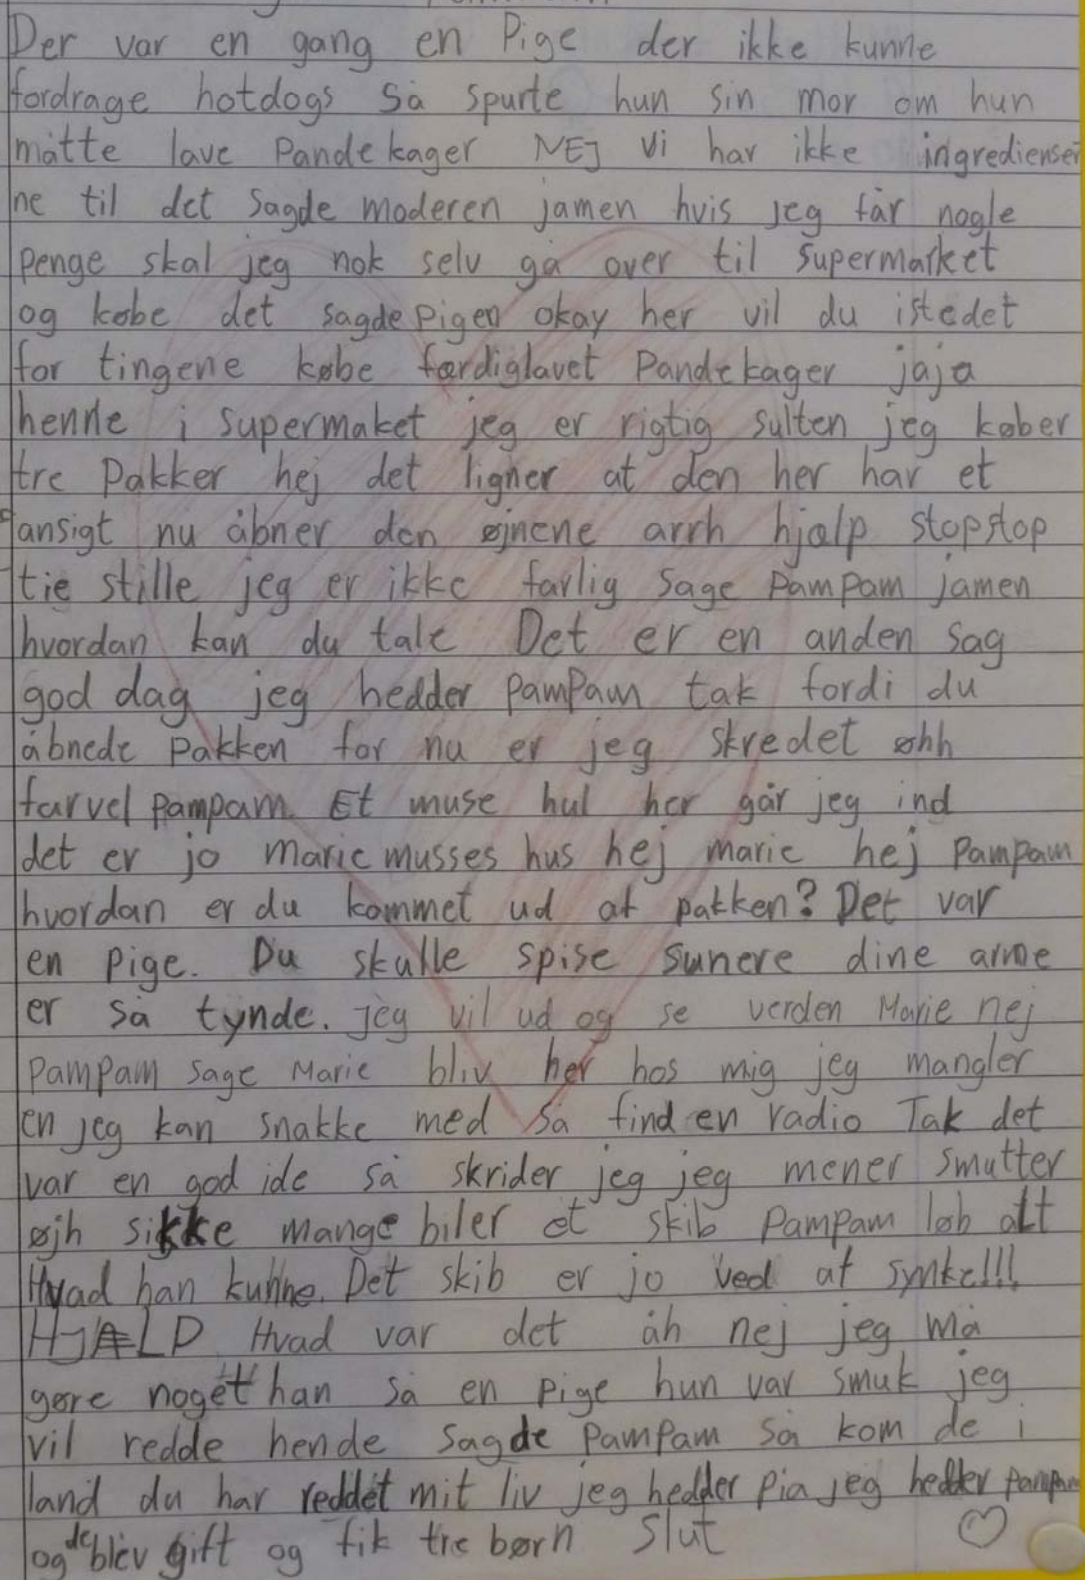 Der var en gang en Pige der ikke kunne
fordrage hotdogs så spurte hun sin mor om hun
måtte lave Pandekager NEJ Vi har ikke ingredienser
ne til det sagde moderen jamen hvis jeg får nogle
penge skal jeg nok selv gå over til supermarket
og købe det sagde pigen okay her vil du istedet
for tingene købe færdiglavet Pandekager jaja
henne i supermaket jeg er rigtig sulten jeg køber
tre Pakker hej det ligner at den her har et
ansigt nu åbner den øjnene arrh hjælp stopstop
tie stille jeg er ikke farlig sage PamPam jamen
hvordan kan du tale Det er en anden sag
god dag jeg hedder PamPam tak fordi du
åbnede Pakken for nu er jeg skredet øhh
farvel Pampam. Et muse hul her går jeg ind
det er jo marie musses hus hej marie hej Pampam
hvordan er du kommet ud af pakken? Det var
en pige. Du skulle spise sunere dine arme
er så tynde. Jeg vil ud og se verden Marie nej
PamPam sage Marie bliv her hos mig jeg mangler
en jeg kan snakke med så find en radio Tak det
var en god ide så skrider jeg jeg mener smutter
øjh sikke mange biler et skib Pampam løb alt
Hvad han kunne. Det skib er jo ved at synke!!!
HJÆLP Hvad var det åh nej jeg må
gøre noget han så en pige hun var smuk jeg
vil redde hende sagde PamPam så kom de i
land du har reddet mit liv jeg hedder pia jeg hedder Pampam
og de blev gift og fik tre børn Slut ♡